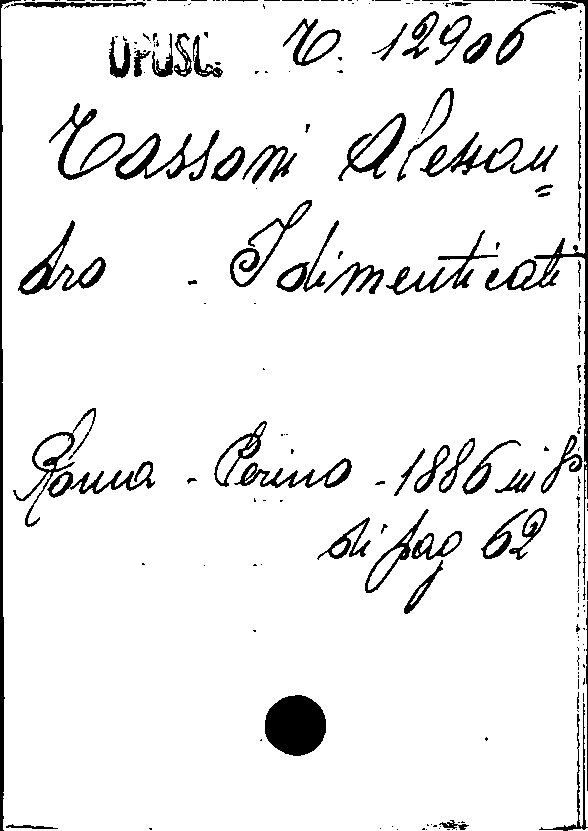 OPUSC. T. 12906
Tassoni Alessan=
dro - I dimenticati
Roma - Perino - 1886 in 8º
di pag 62